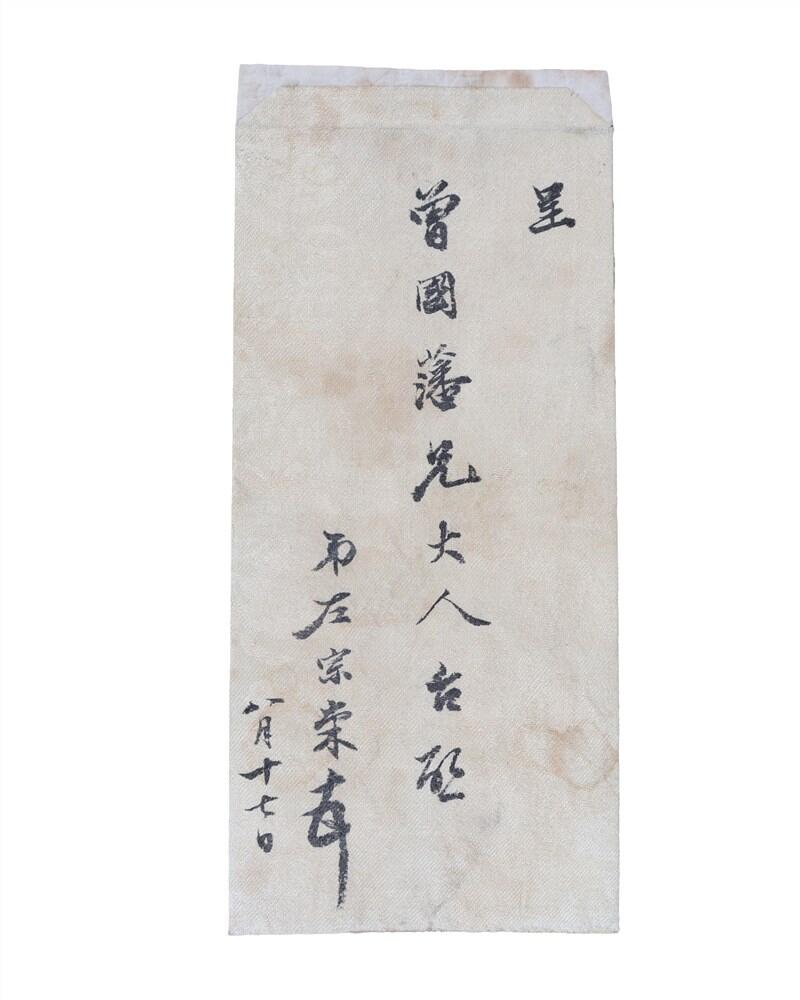 呈
曾國藩兄大人台啟
弟左宗棠拜
八月十七日